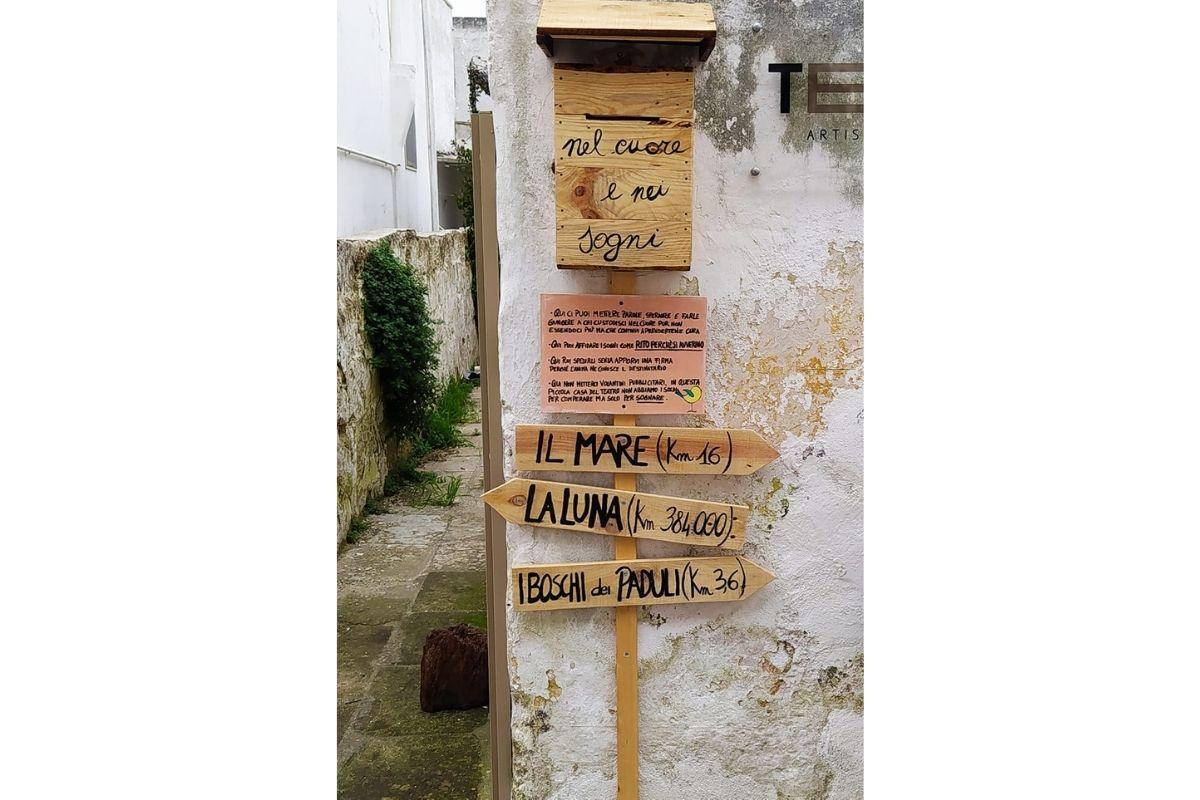 TE
ARTIS
nel cuore
e nei
sogni
• QUI CI PUOI METTERE PAROLE, SPERARE E FARLE
GIUNGERE A CHI CUSTODISCI NEL CUORE PUR NON
ESSENDOCI PIÙ MA CHE CONTINUI A PRENDERTENE CURA
• QUI PUOI AFFIDARE I SOGNI COME RITO PERCHÈ SI AVVERINO
• QUI PUOI SPEDIRLI SENZA APPORVI UNA FIRMA
PERCHÈ L'ANIMA NE CONOSCE IL DESTINATARIO
• QUI NON METTERCI VOLANTINI PUBBLICITARI, IN QUESTA
PICCOLA CASA DEL TEATRO NON ABBIAMO I SOLDI
PER COMPERARE MA SOLO PER SOGNARE.
IL MARE (Km 16)
LA LUNA (Km 384.000):
I BOSCHI dei PADULI (Km 3,6)